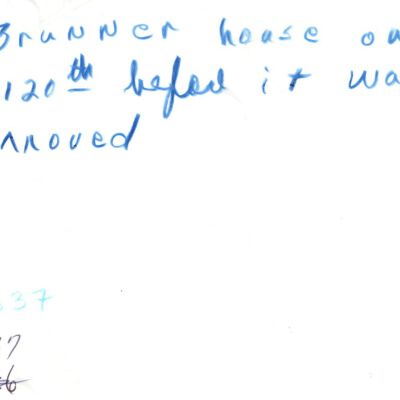 Brunner house on
120th before it wa
mroved
637
17